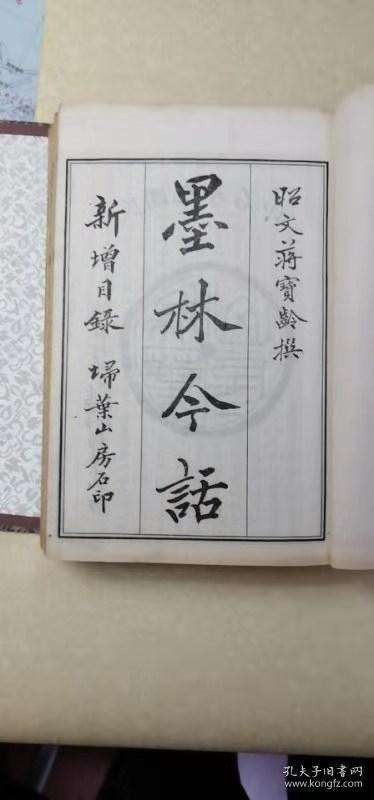 昭文蔣寶齡撰
墨林今話
新增目錄 埽葉山房石印
孔夫子旧书网
www.kongfz.com